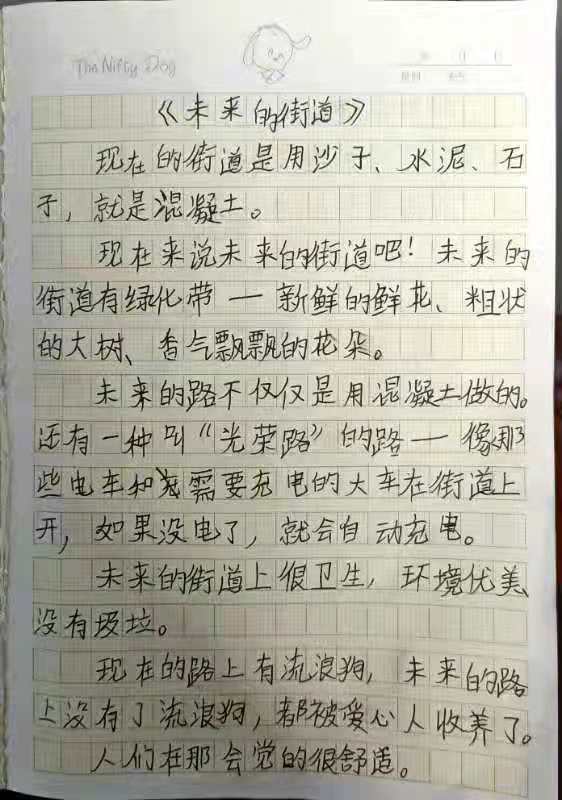 The Nifty Dog
《未来的街道》
现在的街道是用沙子、水泥、石
子，就是混凝土。
现在来说未来的街道吧！未来的
街道有绿化带一新鲜的鲜花、粗状
的大树、香气飘飘的花朵。
未来的路不仅仅是用混凝土做的。
还有一种叫“光荣路”的路一像那
些电车和需要充电的大车在街道上
开，如果没电了，就会自动充电。
未来的街道上很卫生，环境优美、
没有圾垃。
现在的路上有流浪狗，未来的路
上没有了流浪狗，都被爱心人收养了。
人们在那会觉的很舒适。